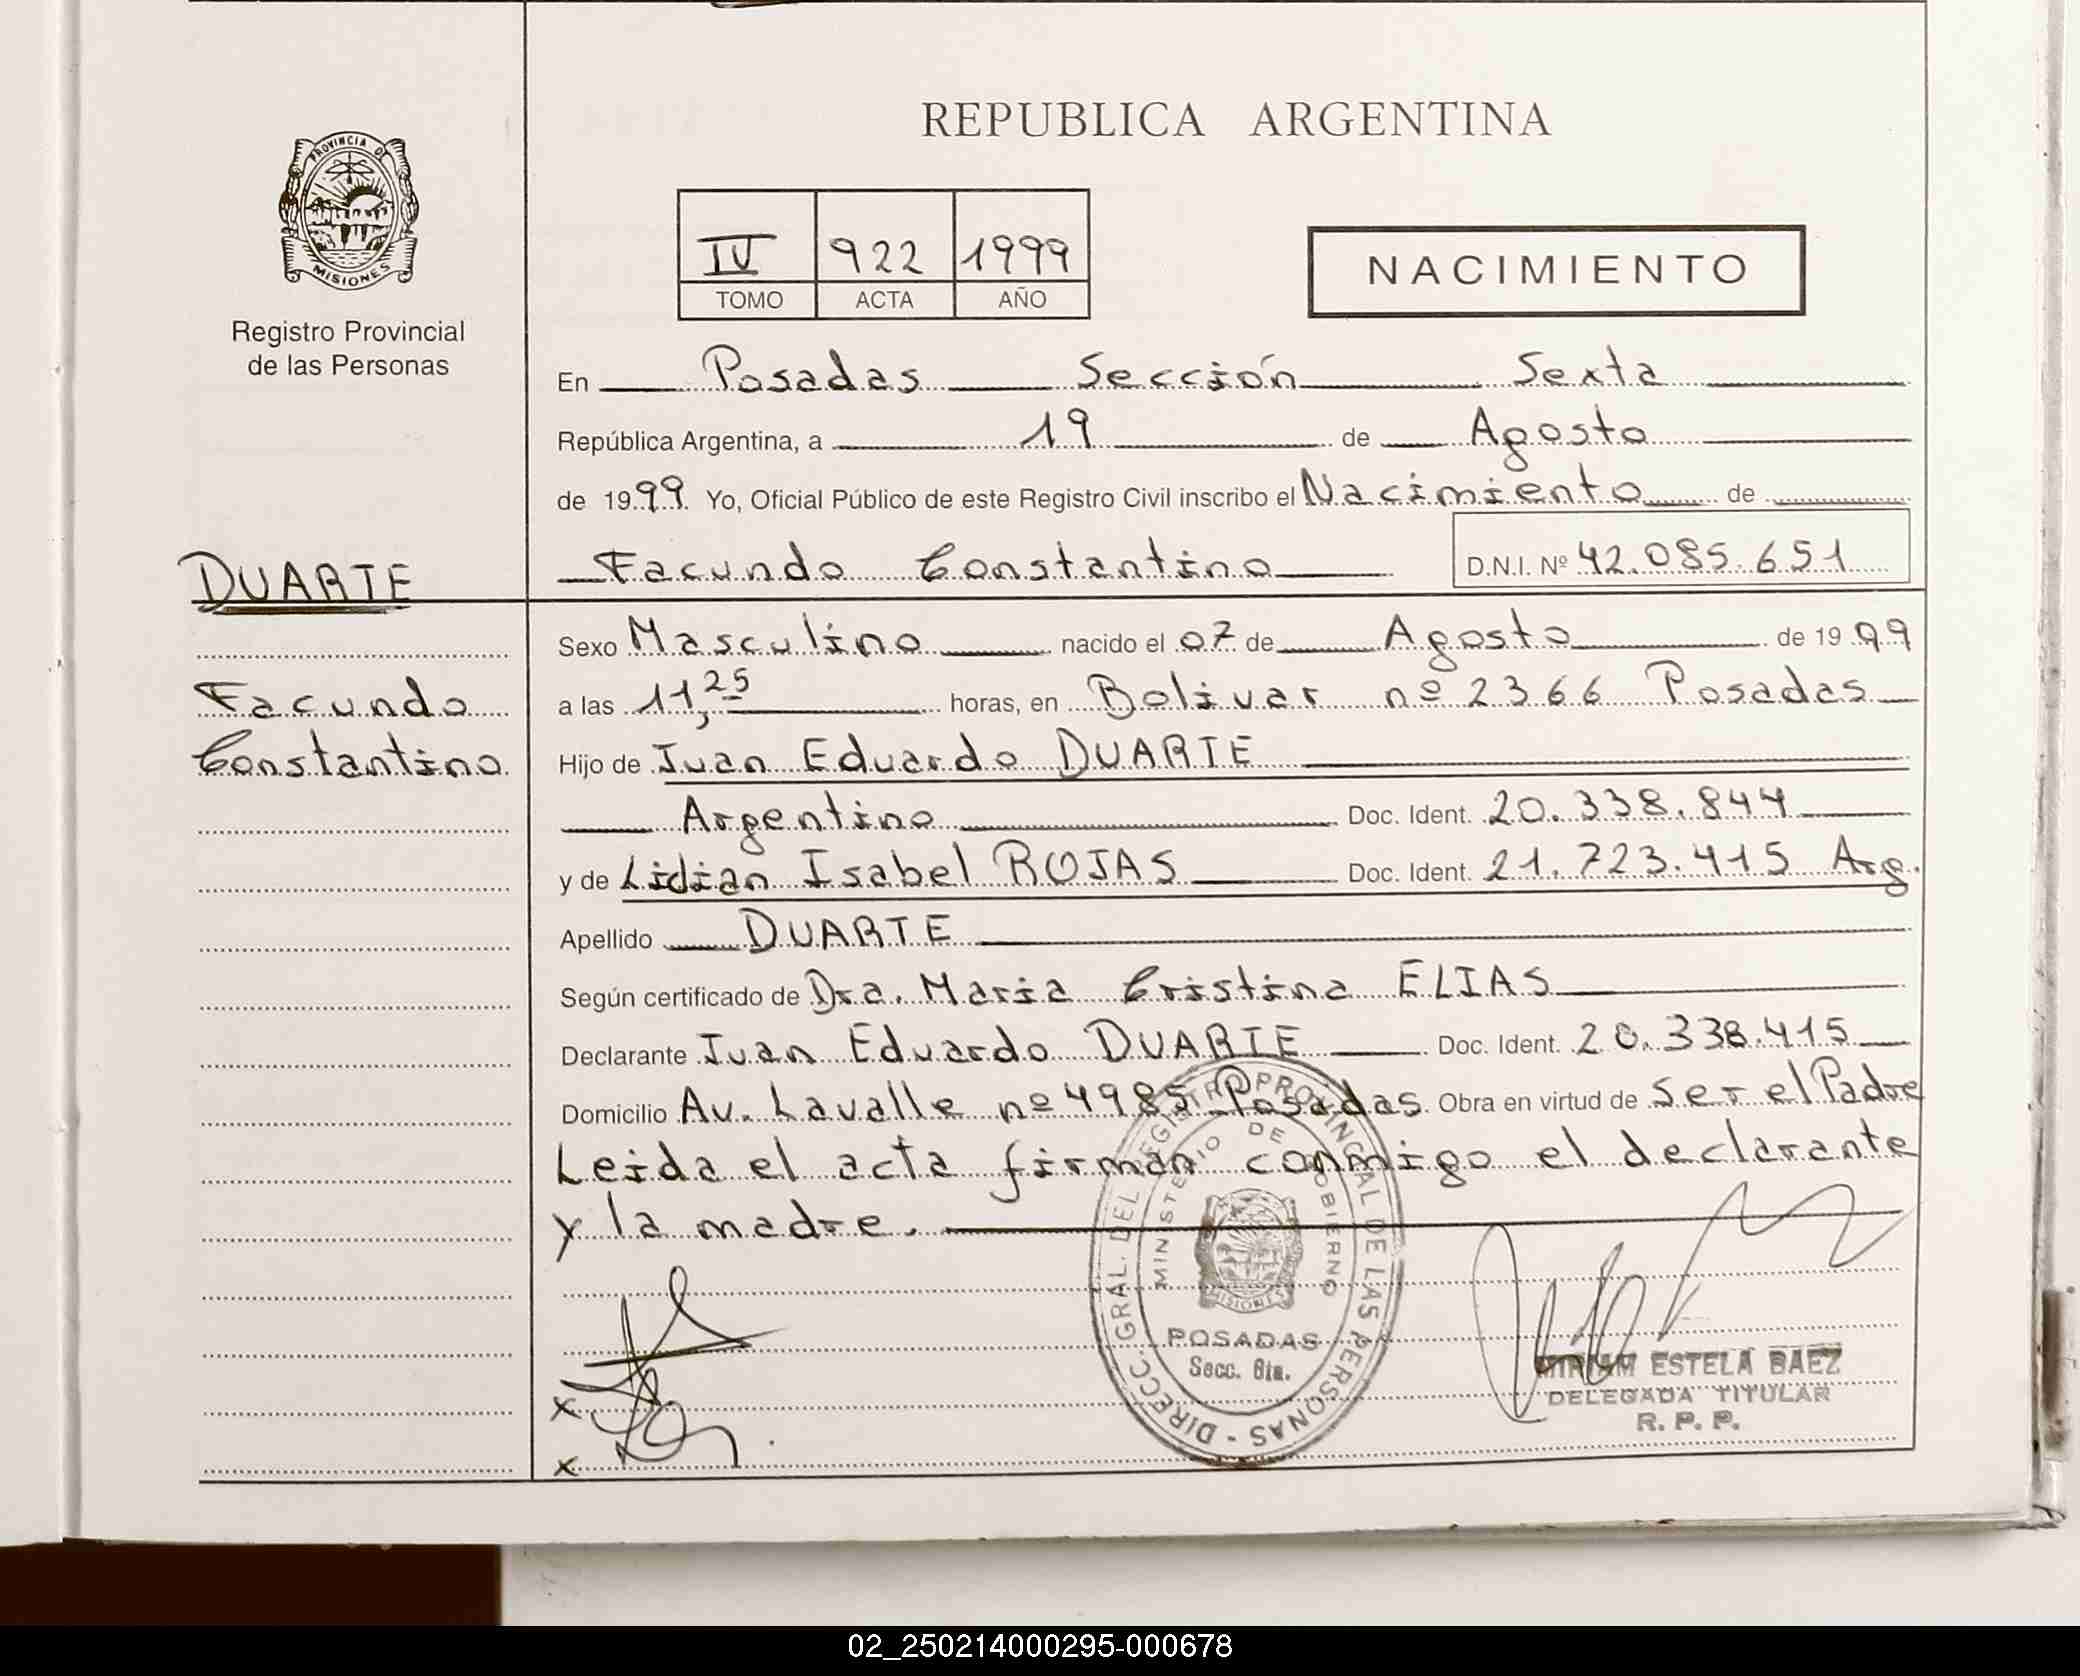 REPUBLICA ARGENTINA
PROVINCIA DE
MISIONES
Registro Provincial
de las Personas
IV 922 1999
TOMO ACTA AÑO
NACIMIENTO
En Posadas Sección Sexta
República Argentina, a 19 de Agosto
de 1999 Yo, Oficial Público de este Registro Civil inscribo el Nacimiento de
DUARTE
Facundo Constantino D.N.I. Nº 42.085.651
Sexo Masculino nacido el 07 de Agosto de 1999
Facundo
a las 11,25 horas, en Bolivar nº 2366 Posadas
Constantino
Hijo de Juan Eduardo DUARTE
Argentino Doc. Ident. 20.338.844
y de Lidian Isabel ROJAS Doc. Ident. 21.723.415 Arg.
Apellido DUARTE
Según certificado de Dra. Maria Cristina ELIAS
Declarante Juan Eduardo DUARTE Doc. Ident. 20.338.415
Domicilio Av. Lavalle nº 4985 Posadas Obra en virtud de Ser el Padre
Leida el acta firman conmigo el declarante
y la madre.
DIRECC. GRAL. DEL REGISTRO PROVINCIAL DE LAS PERSONAS -
MINISTERIO DE GOBIERNO
MISIONES
POSADAS
Secc. 6ta.
MIRIAM ESTELA BAEZ
DELEGADA TITULAR
R. P. P.
x
x
02_250214000295-000678